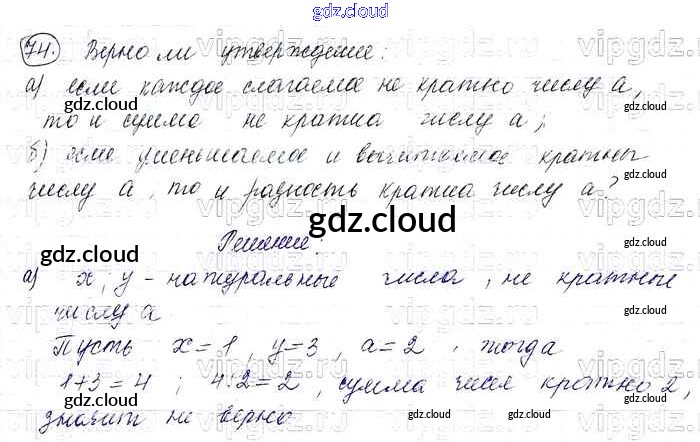 gdz.cloud
74. Верно ли утверждение:
а) если каждое слагаемое не кратно числу а,
то и сумма не кратна числу а;
б) если уменьшаемое и вычитаемое кратны
числу а, то и разность кратна числу а?
Решение:
а) x, y - натуральные числа, не кратные
числу а
Пусть x = 1, y = 3, a = 2, тогда
1+3 = 4 ; 4:2 = 2, сумма чисел кратно 2,
значит не верно.
gdz.cloud
gdz.cloud
gdz.cloud
gdz.cloud
gdz.cloud
gdz.cloud
gdz.cloud
gdz.cloud
gdz.cloud
gdz.cloud
gdz.cloud
gdz.cloud